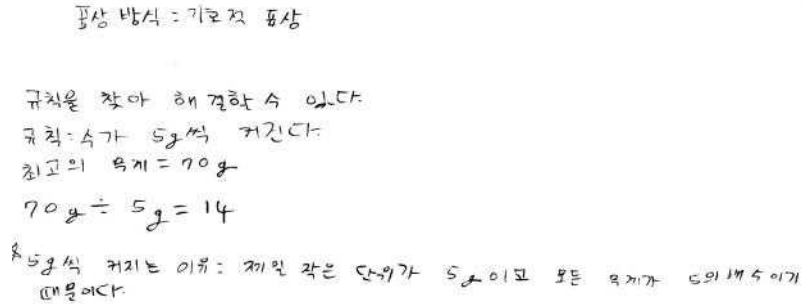 표상 방식 : 기호적 표상
규칙을 찾아 해결할 수 있다.
규칙 : 수가 5g씩 커진다.
최고의 무게 = 70g
70g ÷ 5g = 14
※ 5g씩 커지는 이유 : 제일 작은 단위가 5g이고 모든 무게가 5의 배수이기
때문이다.